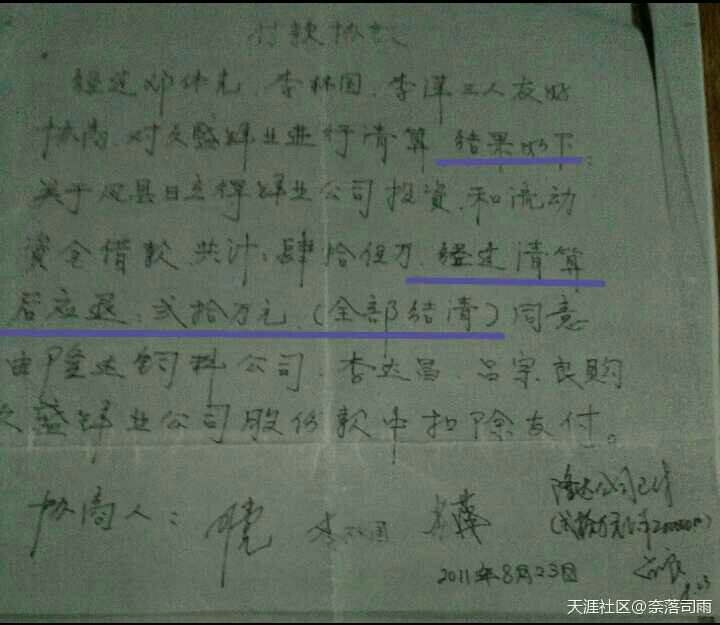 付款协议
经过邓伟光、李林国、李洋三人友好
协商,对久盛锌业进行清算 结果如下:
关于凤县日立得锌业公司投资、和流动
资金借款共计:肆拾伍万、经过清算
后应退:贰拾万元(全部结清)同意
由隆达饲料公司、李达昌、吕宗良购
久盛锌业公司股份款中扣除支付。
协商人: 李林国
隆达公司已付
2011年8月23日
天涯社区@奈落司雨